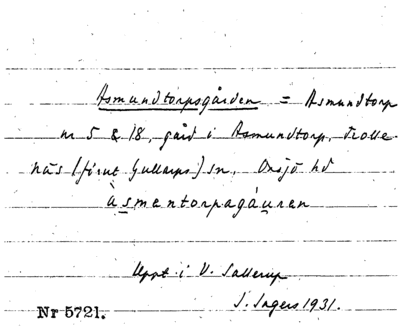 Asmundtorpsgården = Asmundtorp
nr 5 & 18, gård i Asmundtorp, Trolle-
näs (förut Gullarps) sn, Onsjö hd
àsmentorpagáuren
Uppt. i V. Sallerup
I. Ingers 1931.
Nr 5721.